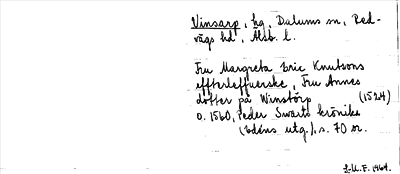 Vinsarp, hg, Dalums sn, Red-
vägs hd, Älvsb. l.
Fru Margreta Eric Knutsons
effterleffuerske, Fru Annes
dotter på Winstörp (1524)
o. 1560, Peder Swarts krönike
(Edéns utg.), s. 70 or.
L.U.F. 1464.